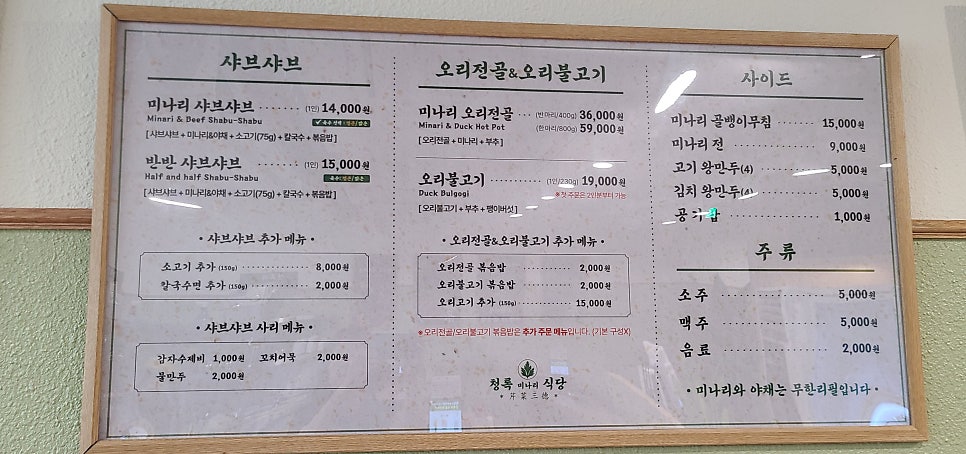 샤브샤브
미나리 샤브샤브 (1인) 14,000원
Minari & Beef Shabu-Shabu
[샤브샤브 + 미나리&야채 + 소고기(75g) + 칼국수 + 볶음밥]
반반 샤브샤브 (1인) 15,000원
Half and half Shabu-Shabu
[샤브샤브 + 미나리&야채 + 소고기(75g) + 칼국수 + 볶음밥]
• 샤브샤브 추가 메뉴 •
소고기 추가 (150g) 8,000원
칼국수면 추가 (150g) 2,000원
• 샤브샤브 사리 메뉴 •
감자수제비 1,000원 꼬치어묵 2,000원
물만두 2,000원
오리전골&오리불고기
미나리 오리전골 (반마리/400g) 36,000원
Minari & Duck Hot Pot (한마리/800g) 59,000원
[오리전골 + 미나리 + 부추]
오리불고기 (1인/230g) 19,000원
Duck Bulgogi ※첫 주문은 2인분부터 가능
[오리불고기 + 부추 + 팽이버섯]
• 오리전골&오리불고기 추가 메뉴 •
오리전골 볶음밥 2,000원
오리불고기 볶음밥 2,000원
오리고기 추가 (150g) 15,000원
※오리전골/오리불고기 볶음밥은 추가 주문 메뉴입니다. (기본 구성X)
청록 미나리 식당
사이드
미나리 골뱅이무침 15,000원
미나리 전 9,000원
고기 왕만두(4) 5,000원
김치 왕만두(4) 5,000원
공기밥 1,000원
주류
소주 5,000원
맥주 5,000원
음료 2,000원
• 미나리와 야채는 무한리필입니다 •